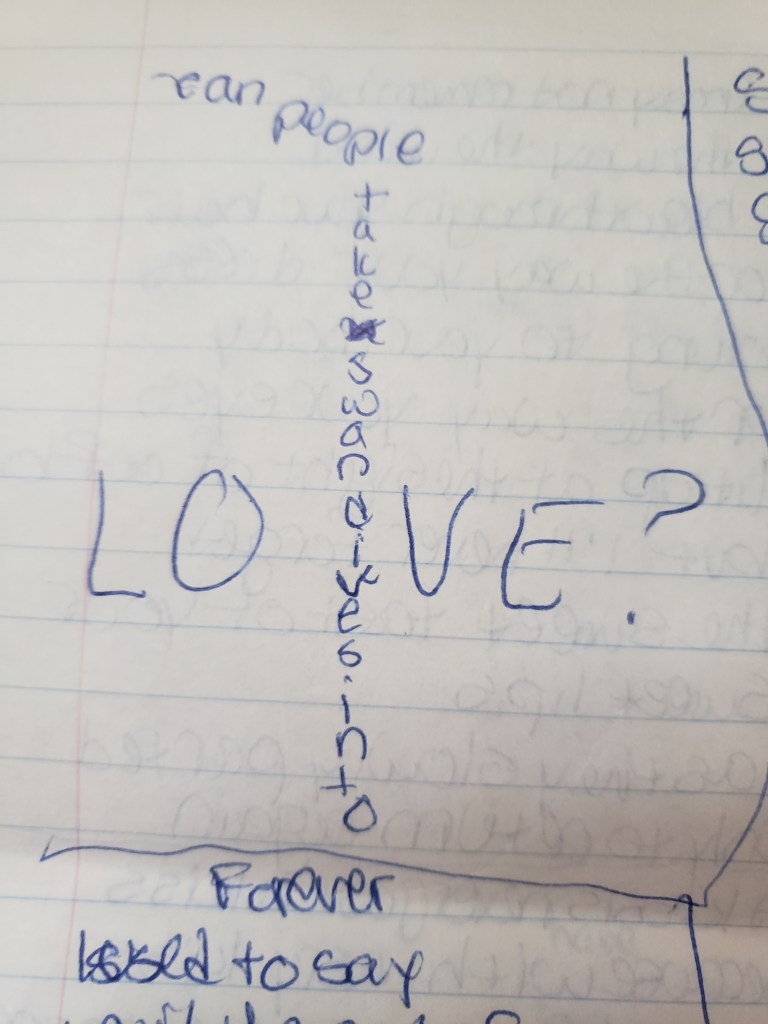 can people
take swan dives into
LOVE?
Forever
I used to say